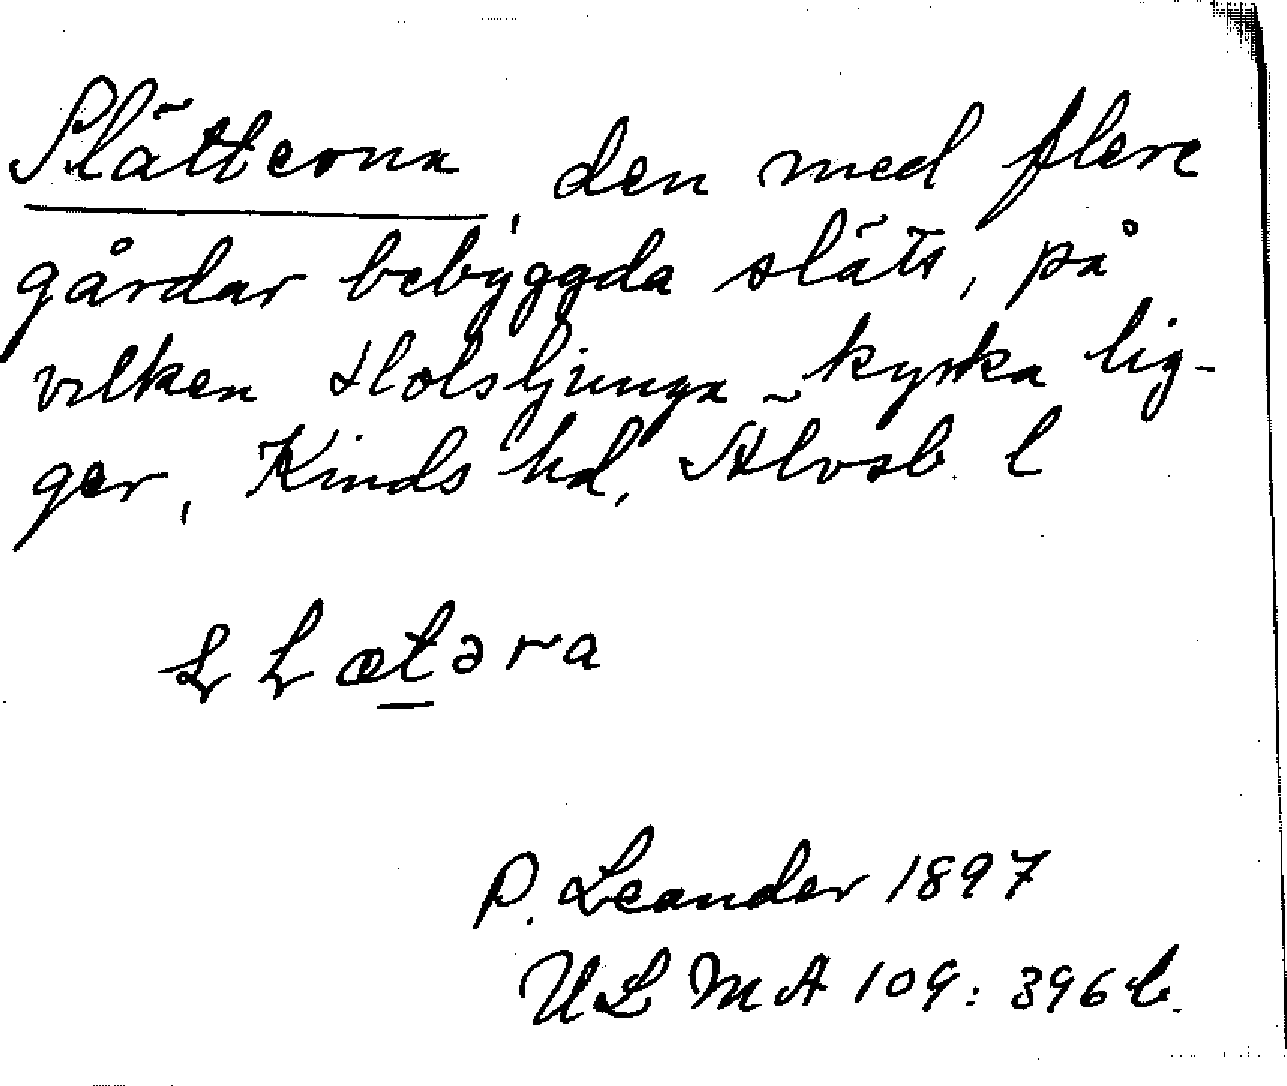 Slätterna, den med flere
gårdar bebyggda slätt, på
vilken Holsljunga kyrka lig-
ger, Kinds hd, Älvsb l
P. Leander 1897
ULMA 109: 396 b.